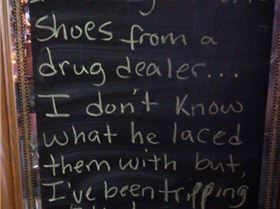 shoes from a
drug dealer...
I don't know
what he laced
them with but,
I've been tripping